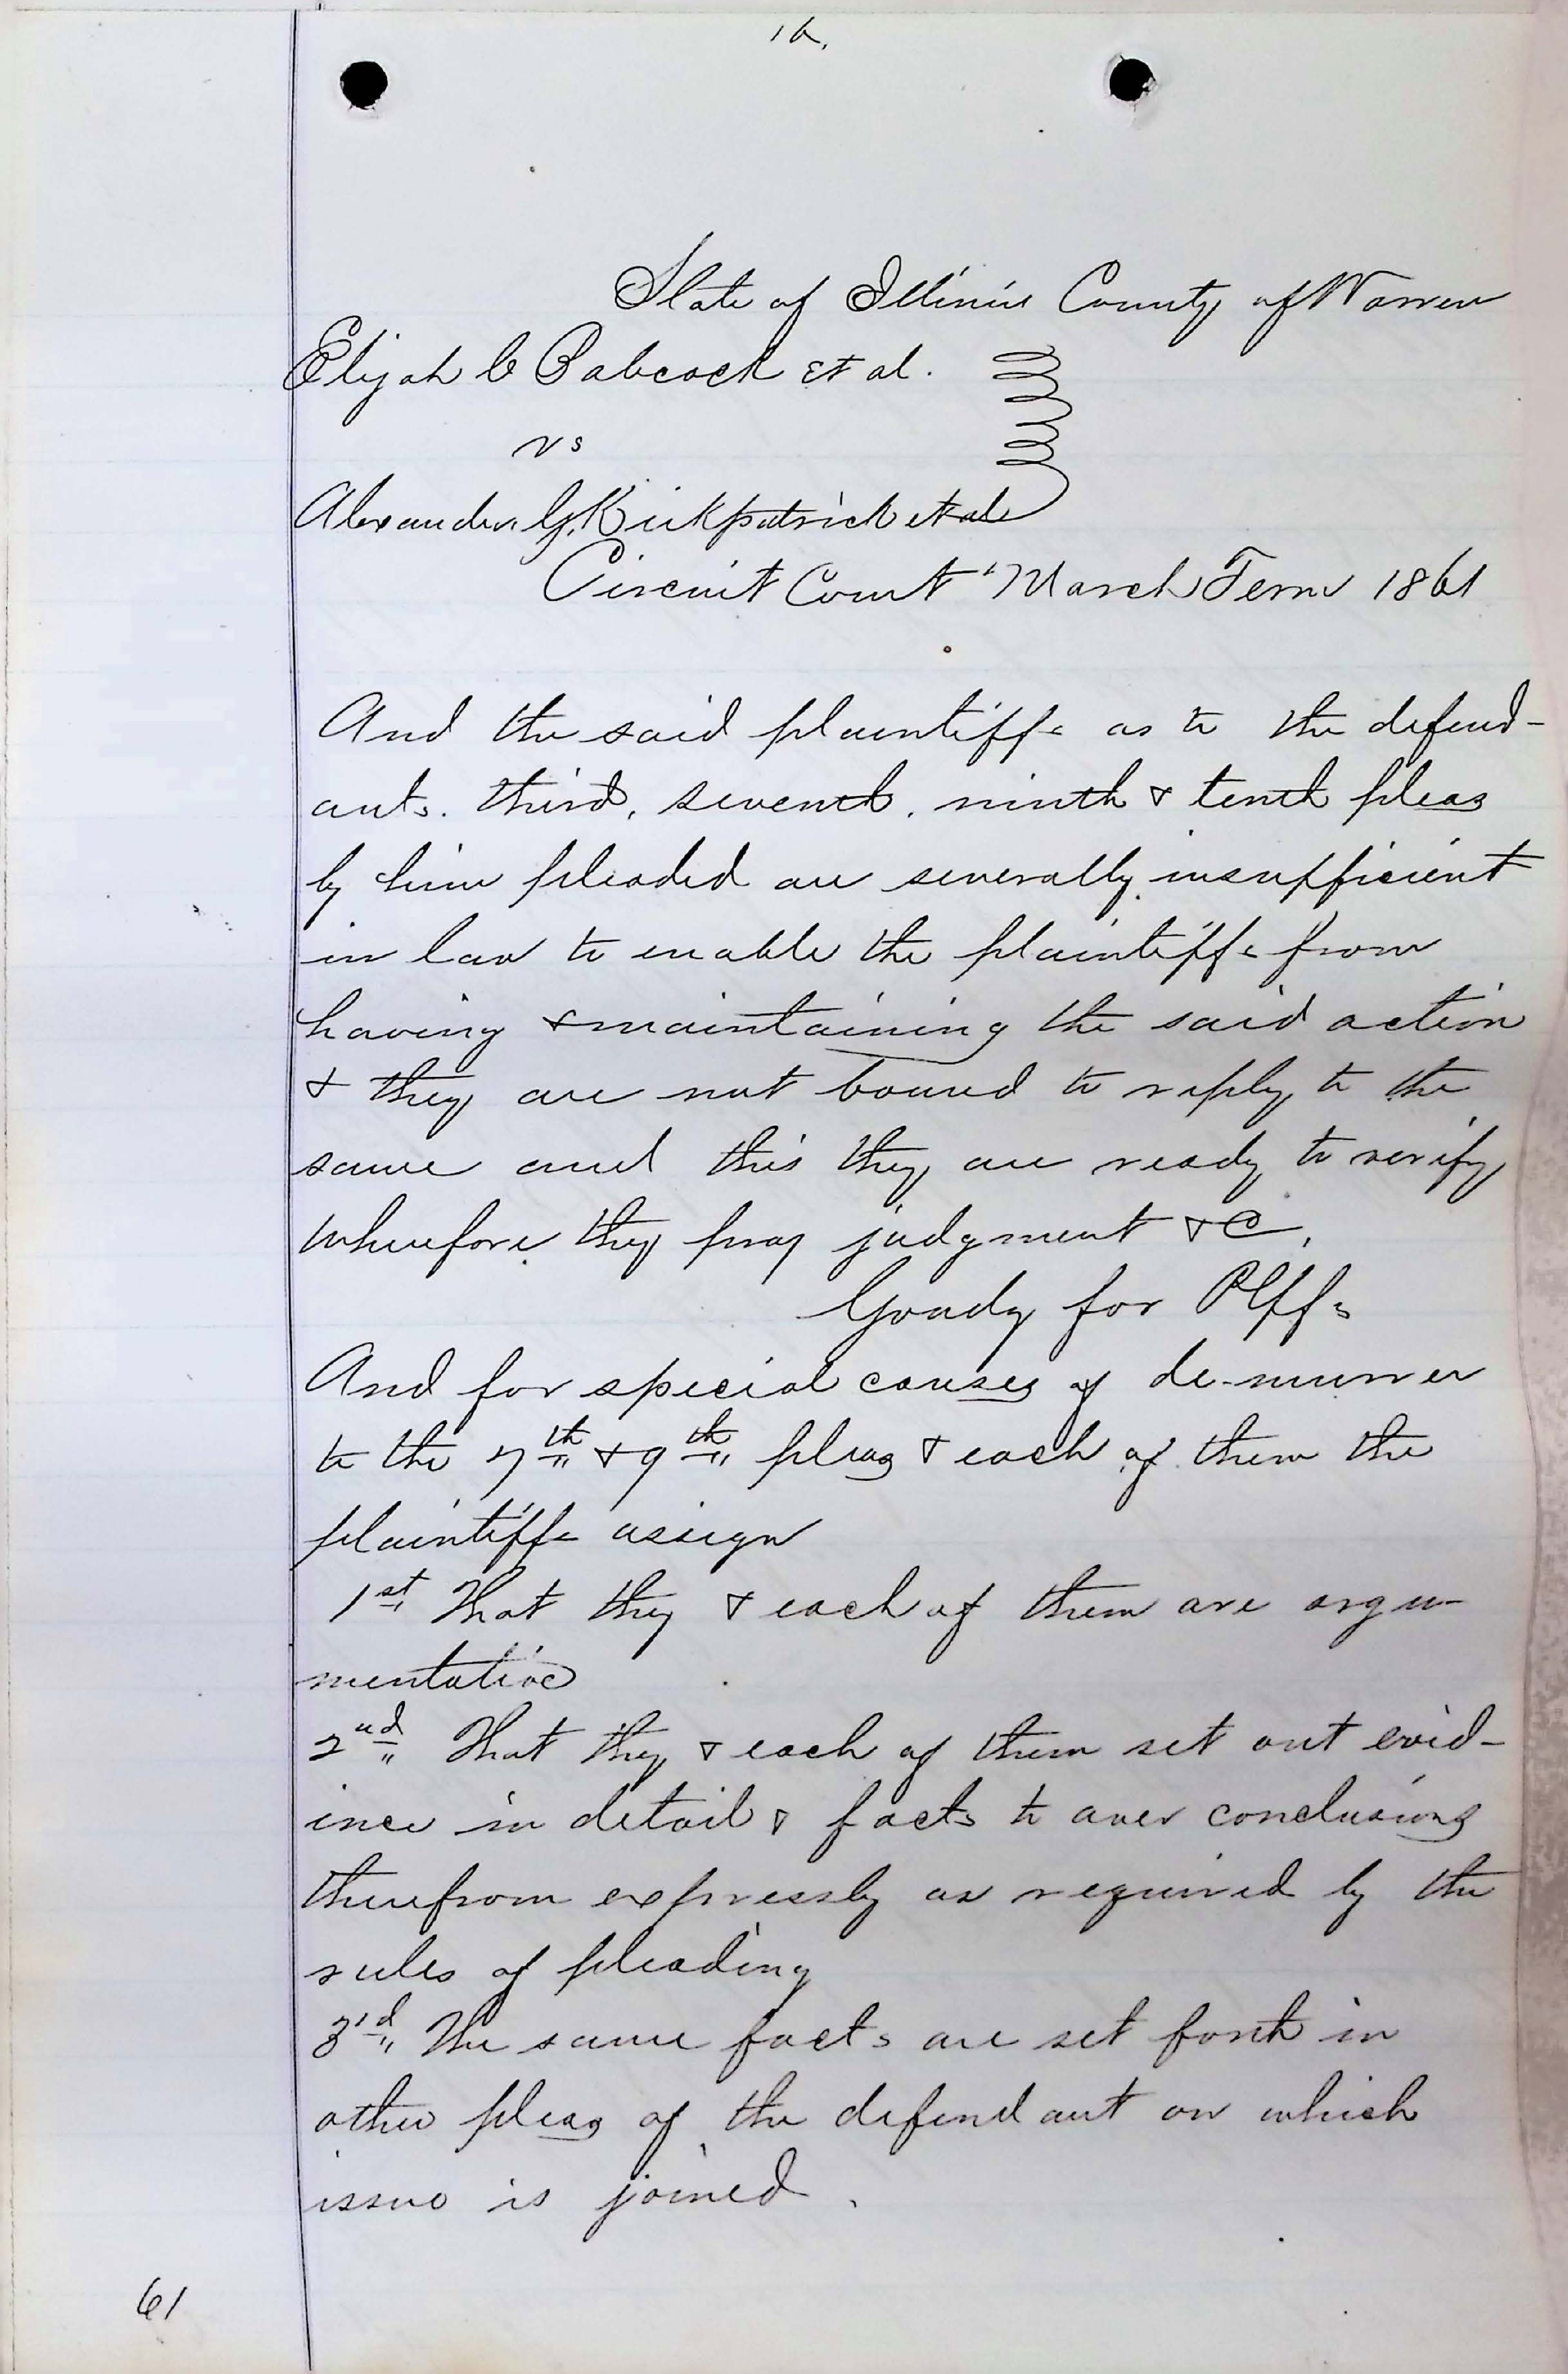 16.
State of Illinois County of Warren
Elijah C Babcock et al.
vs
Alexander G. Kirkpatrick et al
Circuit Court March Term 1861
And the said plaintiffs as to the defend-
ants. third, seventh, ninth & tenth pleas
by him pleaded are severally insufficient
in law to enable the plaintiffs from
having & maintaining the said action
& they are not bound to reply to the
same and this they are ready to verify
wherefore they pray judgment &C,
Goudy for Plffs
And for special causes of de-murrer
to the 7th & 9th pleas & each of them the
plaintiffs assign
1st That they & each of them are argu-
mentative
2nd That they & each of them set out evid-
ince in detail & facts to aver conclusions
therefrom expressly as required by the
rules of pleading
3rd The same facts are set forth in
other pleas of the defendant on which
issue is joined.
61